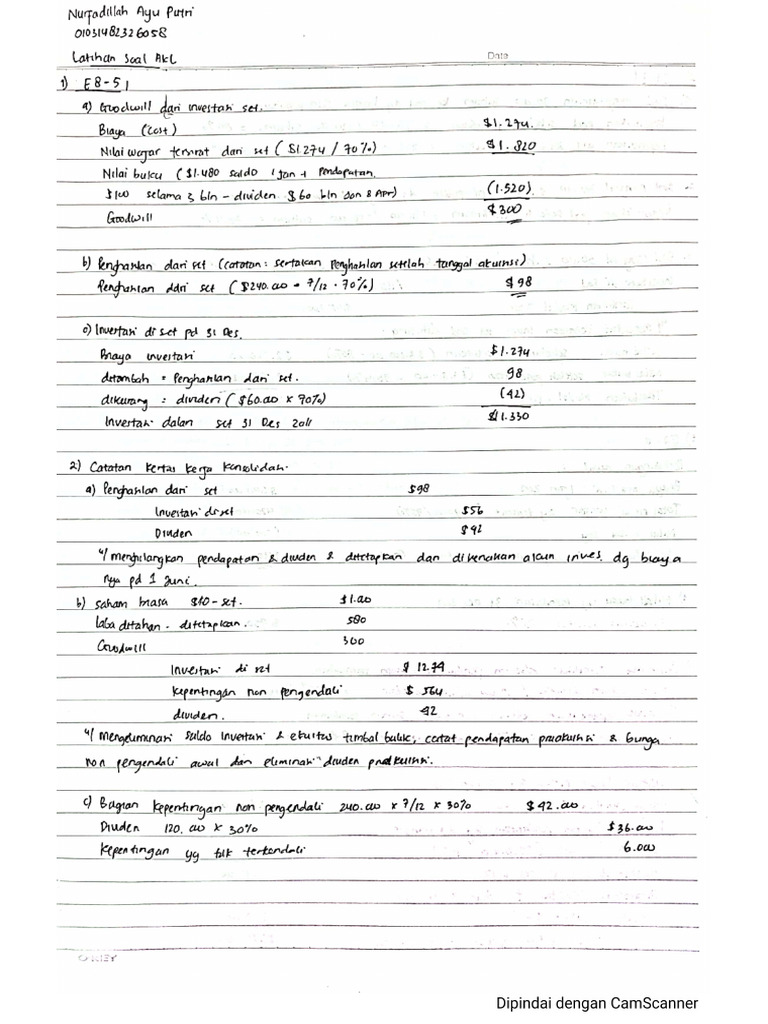 Nurfadillah Ayu Putri
01031482326058
Latihan Soal AKL
Date
1) E8-5
a) Goodwill dari investasi set.
Biaya (Cost) $1.274.
Nilai wajar tersirat dari set ($1.274 / 70%) $1.820
Nilai buku ($1.480 saldo 1 Jan + Pendapatan
$100 selama 5 bln - dividen $60 bln dan 8 Apr) (1.520)
Goodwill $300
b) Penghasilan dari set (catatan: sertakan penghasilan setelah tanggal akuisisi)
Penghasilan dari set ($240.00 × 7/12 · 70%) $98
c) Investasi di set pd 31 Des.
Biaya investasi $1.274
ditambah = Penghasilan dari set. 98
dikurang = dividen ($60.00 x 70%) (42)
Investasi dalam set 31 Des 2011 $1.330
2) Catatan kertas kerja konsolidasi.
a) Penghasilan dari set $98
Investasi di set $56
Dividen $42
u/ menghilangkan pendapatan & dividen & ditetapkan dan dikenakan akun inves. dg biaya
nya pd 1 Juni.
b) saham biasa $10 - set. $1.00
laba ditahan - ditetapkan. 580
Goodwill 300
Investasi di set $ 1274
kepentingan non pengendali $ 564
dividen. 42
u/ mengeliminasi saldo investasi & ekuitas timbal balik, catat pendapatan praakuisisi & bunga
non pengendali awal dan eliminasi dividen praakuisisi.
c) Bagian kepentingan non pengendali 240.00 x 7/12 x 30% $42.00
Dividen 120.00 x 30% $36.00
kepentingan yg tak terkendali 6.000
Dipindai dengan CamScanner